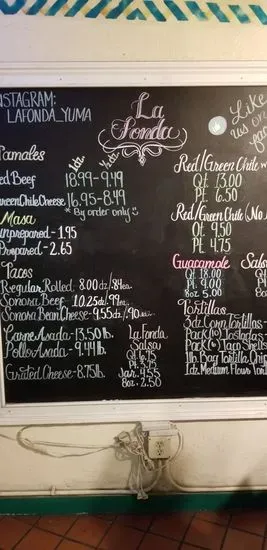 INSTAGRAM:
LAFONDA_YUMA
La
Fonda
Like
us on
Tamales
1dz 1/2dz
Red Beef 18.99-9.49
Green Chile Cheese 16.95-8.49
*By order only
Masa
Unprepared-1.95
Prepared-2.65
Tacos
Regular Rolled-8.00dz/.84ea.
Sonora Beef-10.25dz/.99ea.
Sonora Bean Cheese-9.55dz/.90
Carne Asada-13.50lb.
Pollo Asada-9.44lb.
Grated Cheese-8.75lb.
La Fonda
Salsa
Qt. 6.75
Jar. 4.55
8oz. 2.50
Red/Green Chile w
Qt. 13.00
Pt. 6.50
Red/Green Chile (No
Qt. 9.50
Pt. 4.75
Guacamole Sals
Qt 18.00
Pt. 9.00
8oz 5.00
Tortillas
3dz. Corn Tortillas-
Pack(10) Tostadas-
Pack(10) Taco Shells
1lb. Bag Tortilla Chip
1dz. Medium Flour Tort